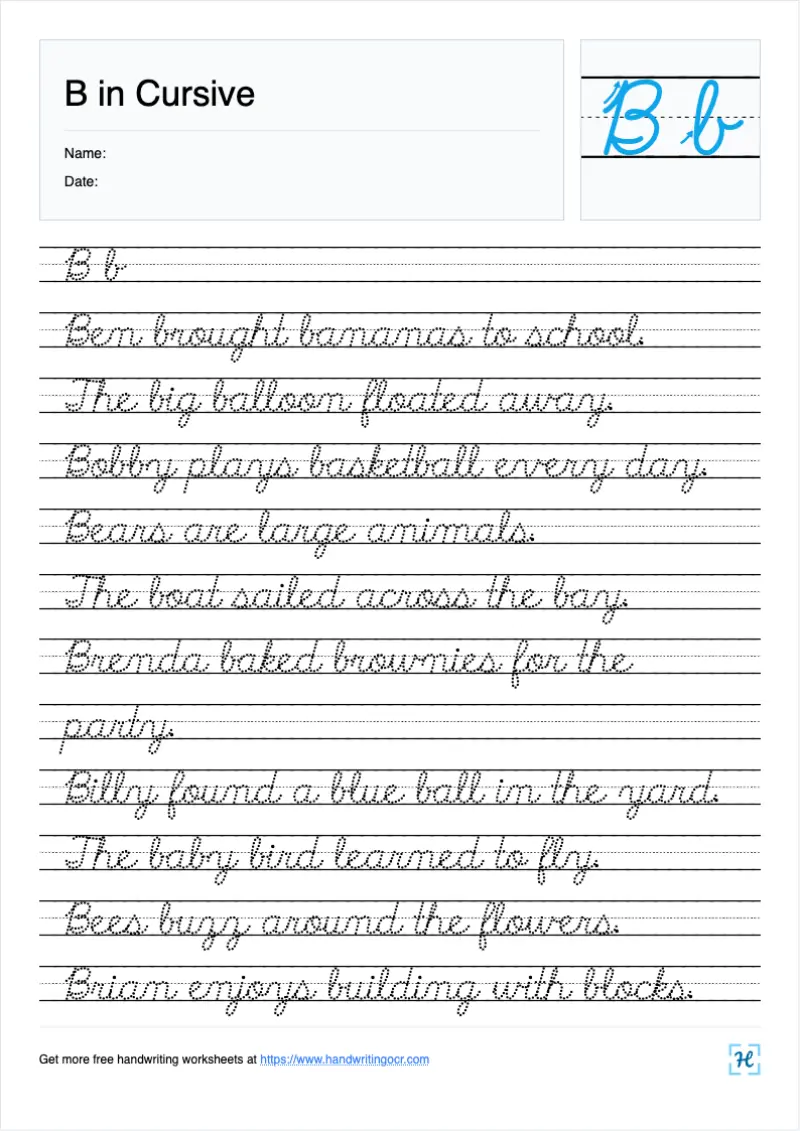 B in Cursive
B b
Name:
Date:
B b
Ben brought bananas to school.
The big balloon floated away.
Bobby plays basketball every day.
Bears are large animals.
The boat sailed across the bay.
Brenda baked brownies for the
party.
Billy found a blue ball in the yard.
The baby bird learned to fly.
Bees buzz around the flowers.
Brian enjoys building with blocks.
Get more free handwriting worksheets at https://www.handwritingocr.com
H